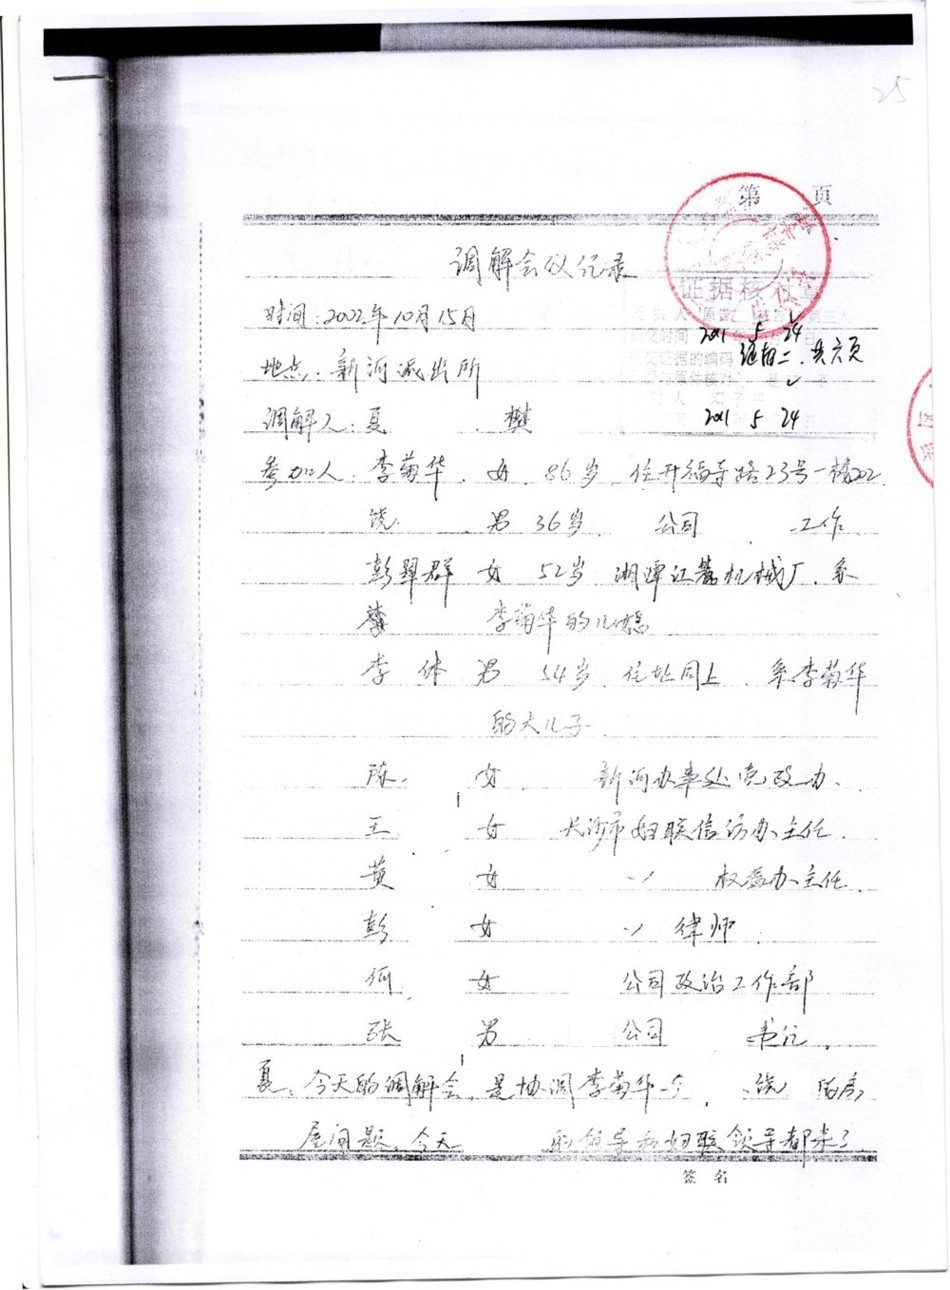 25
第 页
调解会议记录
证据核
时间:2002年10月15日
2001 5 24
地点:新河派出所
证据二、共六页
调解人:夏 、樊
2001 5 24
参加人:李菊华、女 86岁 住开福寺路23号一栋202
饶 男 36岁 公司 工作
彭翠群 女 52岁 湘潭江麓机械厂、系
李菊华的儿媳
李 男 54岁 住址同上、系李菊华
的大儿子
陈 女 新河办事处党政办、
王 女 长沙市妇联信访办主任
黄 女 〃 权益办主任
彭 女 〃 律师
何 女 公司政治工作部
张 男 公司 书记
夏:今天的调解会,是协调李菊华 饶 房
屋问题,今天 的领导和妇联领导都来了
签 名